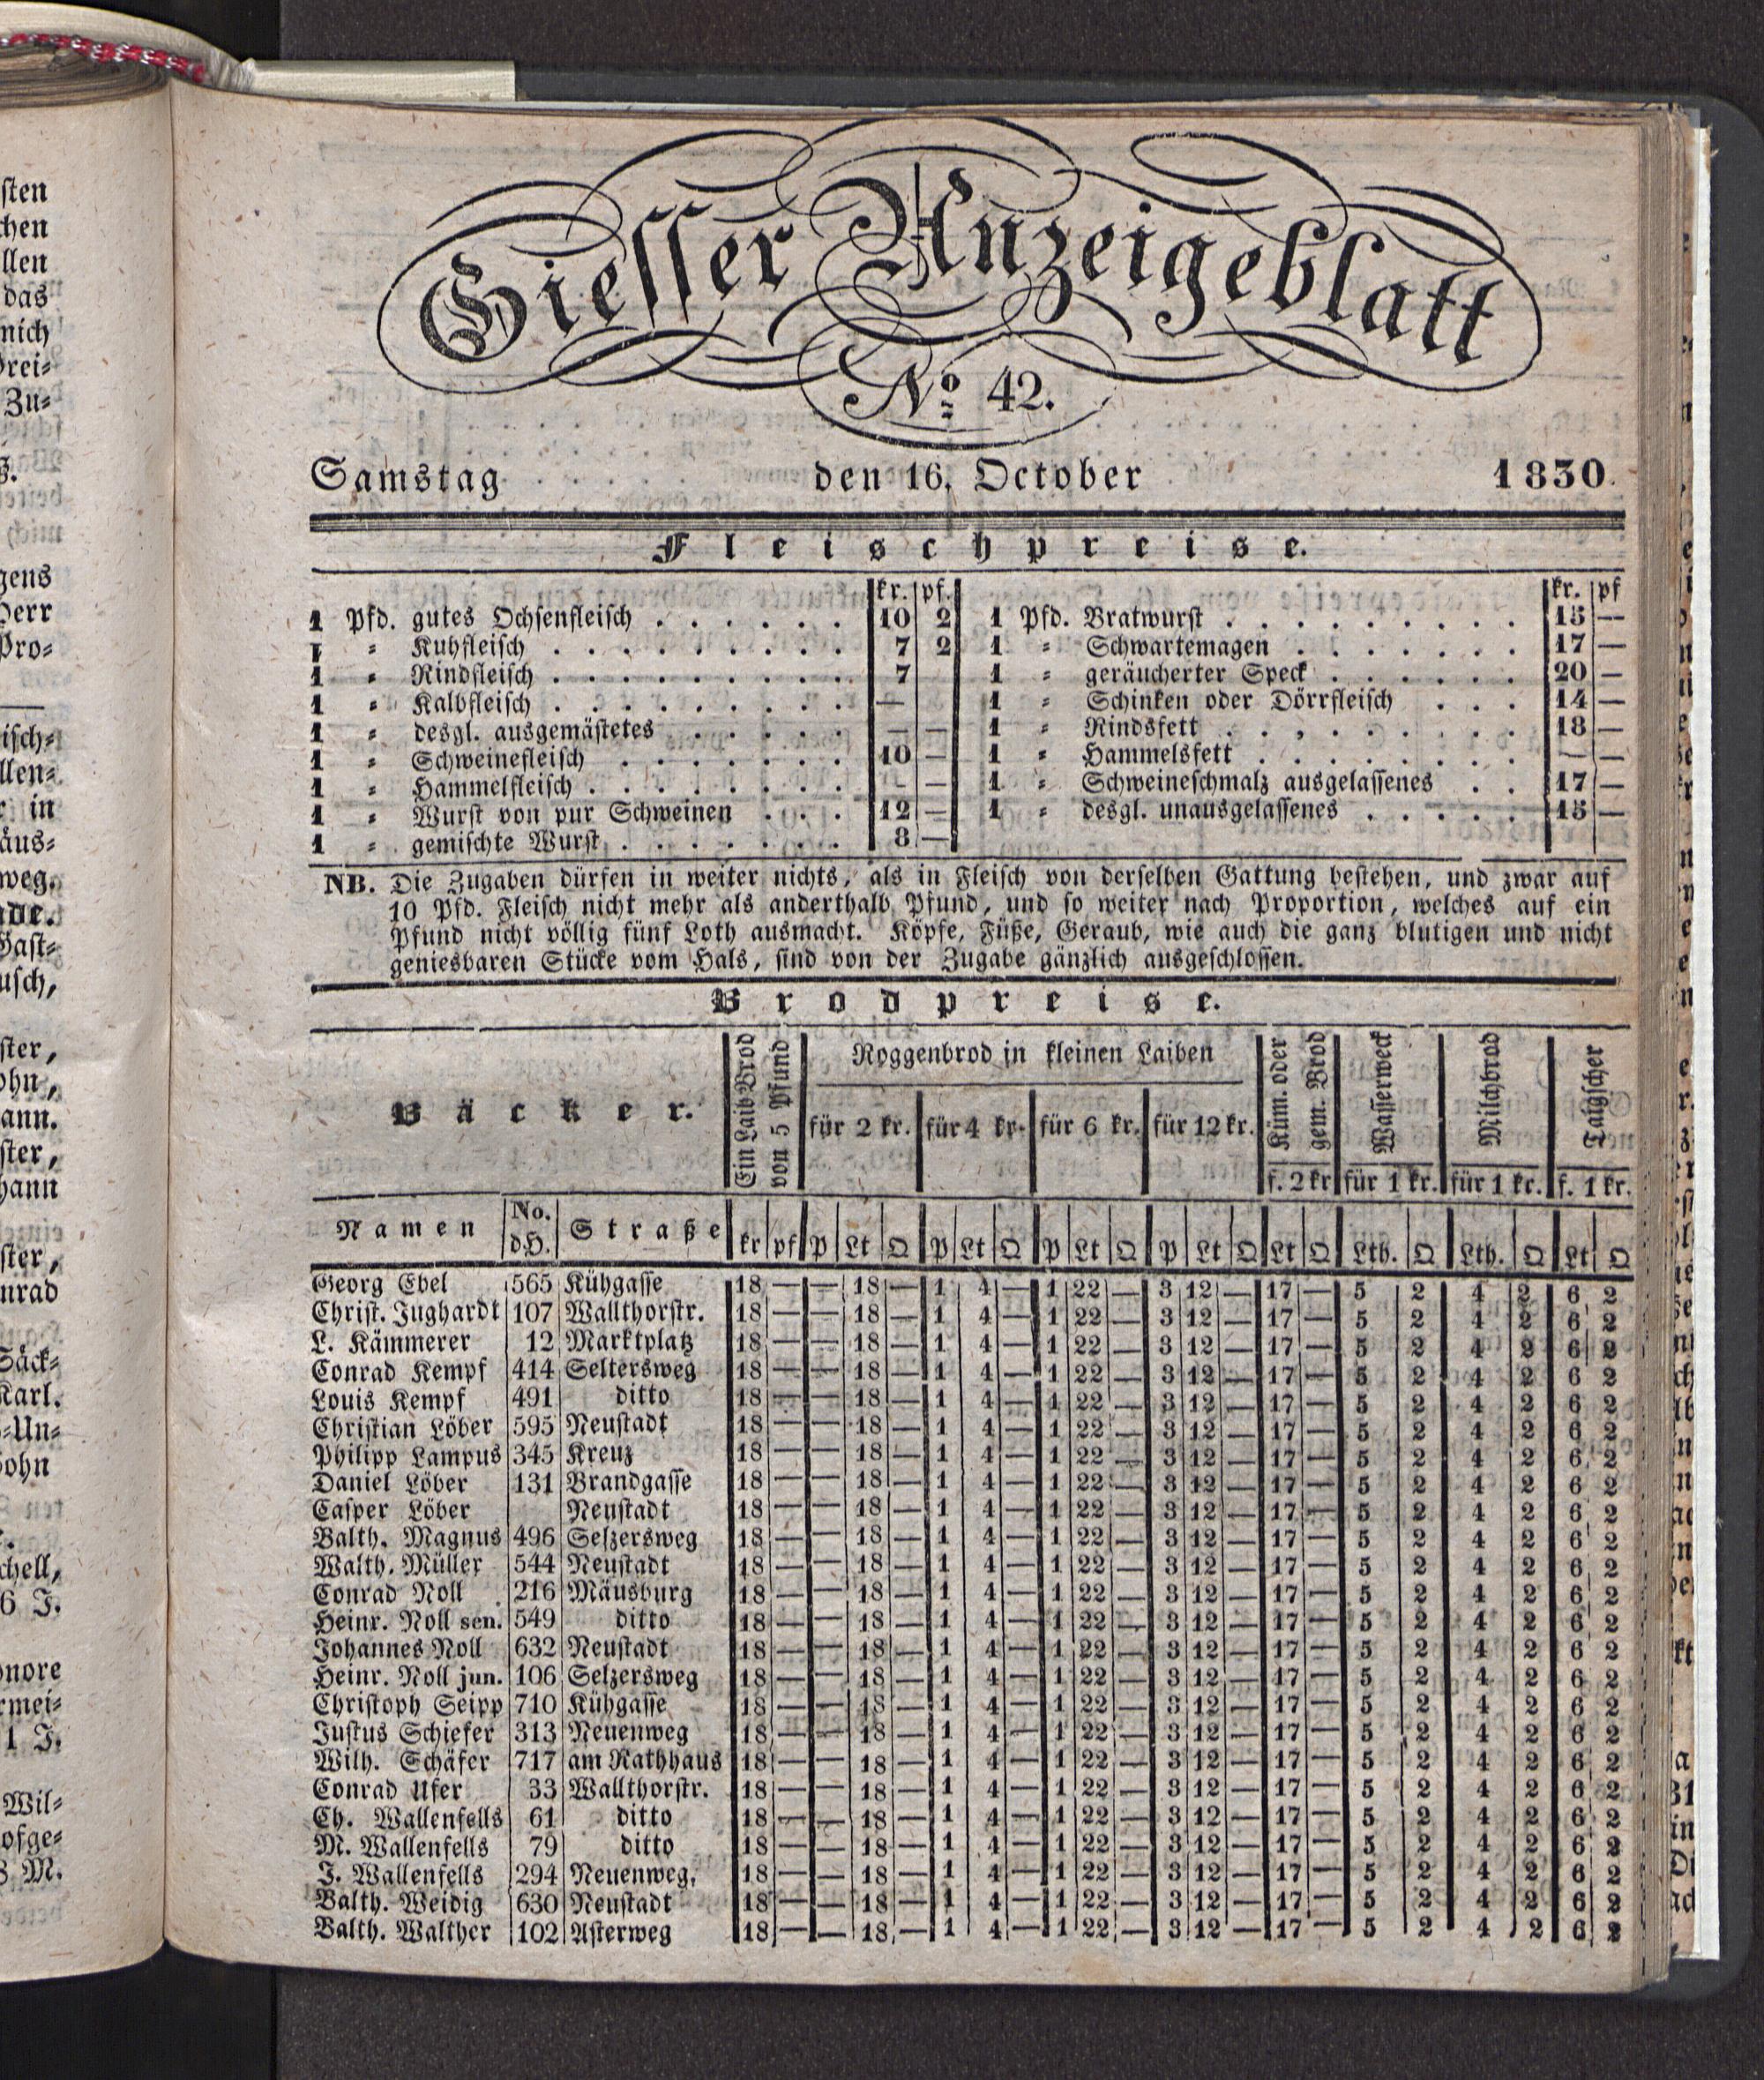 Giesser Anzeigeblatt
No 42.
Samstag den 16. October 1830.
Fleischpreise.
kr. pf. kr. pf
1 Pfd. gutes Ochsenfleisch 10 2 1 Pfd. Bratwurst 15 —
1 = Kuhfleisch 7 2 1 = Schwartemagen 17 —
1 = Rindfleisch 7 1 = geräucherter Speck 20 —
1 = Kalbfleisch — 1 = Schinken oder Dörrfleisch 14 —
1 = desgl. ausgemästetes — — 1 = Rindsfett 18 —
1 = Schweinefleisch 10 — 1 = Hammelsfett — —
1 = Hammelfleisch — — 1 = Schweineschmalz ausgelassenes 17 —
1 = Wurst von pur Schweinen 12 — 1 = desgl. unausgelassenes 15 —
1 = gemischte Wurst 8 —
NB. Die Zugaben dürfen in weiter nichts, als in Fleisch von derselben Gattung bestehen, und zwar auf
10 Pfd. Fleisch nicht mehr als anderthalb Pfund, und so weiter nach Proportion, welches auf ein
Pfund nicht völlig fünf Loth ausmacht. Köpfe, Füße, Geraub, wie auch die ganz blutigen und nicht
geniesbaren Stücke vom Hals, sind von der Zugabe gänzlich ausgeschlossen.
Brodpreise.
Bäcker.
Ein Laib Brod
von 5 Pfund
Roggenbrod in kleinen Laiben
für 2 kr. für 4 kr. für 6 kr. für 12 kr.
Küm. oder
gem. Brod
f. 2 kr
Wasserweck
für 1 kr.
Milchbrod
für 1 kr.
Taigscher
f. 1 kr.
Namen No. d.H. Straße kr pf P Lt Q P Lt Q P Lt Q P Lt Q Lt Q Lth. Q Lth. Q Lt Q
Georg Ebel 565 Kühgasse 18 — — 18 — 1 4 — 1 22 — 3 12 — 17 — 5 2 4 2 6 2
Christ. Jughardt 107 Wallthorstr. 18 — — 18 — 1 4 — 1 22 — 3 12 — 17 — 5 2 4 2 6 2
L. Kämmerer 12 Marktplatz 18 — — 18 — 1 4 — 1 22 — 3 12 — 17 — 5 2 4 2 6 2
Conrad Kempf 414 Seltersweg 18 — — 18 — 1 4 — 1 22 — 3 12 — 17 — 5 2 4 2 6 2
Louis Kempf 491 ditto 18 — — 18 — 1 4 — 1 22 — 3 12 — 17 — 5 2 4 2 6 2
Christian Löber 595 Neustadt 18 — — 18 — 1 4 — 1 22 — 3 12 — 17 — 5 2 4 2 6 2
Philipp Lampus 345 Kreuz 18 — — 18 — 1 4 — 1 22 — 3 12 — 17 — 5 2 4 2 6 2
Daniel Löber 131 Brandgasse 18 — — 18 — 1 4 — 1 22 — 3 12 — 17 — 5 2 4 2 6 2
Casper Löber Neustadt 18 — — 18 — 1 4 — 1 22 — 3 12 — 17 — 5 2 4 2 6 2
Balth. Magnus 496 Selzersweg 18 — — 18 — 1 4 — 1 22 — 3 12 — 17 — 5 2 4 2 6 2
Walth. Müller 544 Neustadt 18 — — 18 — 1 4 — 1 22 — 3 12 — 17 — 5 2 4 2 6 2
Conrad Noll 216 Mäusburg 18 — — 18 — 1 4 — 1 22 — 3 12 — 17 — 5 2 4 2 6 2
Heinr. Noll sen. 549 ditto 18 — — 18 — 1 4 — 1 22 — 3 12 — 17 — 5 2 4 2 6 2
Johannes Noll 632 Neustadt 18 — — 18 — 1 4 — 1 22 — 3 12 — 17 — 5 2 4 2 6 2
Heinr. Noll jun. 106 Selzersweg 18 — — 18 — 1 4 — 1 22 — 3 12 — 17 — 5 2 4 2 6 2
Christoph Seipp 710 Kühgasse 18 — — 18 — 1 4 — 1 22 — 3 12 — 17 — 5 2 4 2 6 2
Justus Schiefer 313 Neuenweg 18 — — 18 — 1 4 — 1 22 — 3 12 — 17 — 5 2 4 2 6 2
Wilh. Schäfer 717 am Rathhaus 18 — — 18 — 1 4 — 1 22 — 3 12 — 17 — 5 2 4 2 6 2
Conrad Ufer 33 Wallthorstr. 18 — — 18 — 1 4 — 1 22 — 3 12 — 17 — 5 2 4 2 6 2
Ch. Wallenfells 61 ditto 18 — — 18 — 1 4 — 1 22 — 3 12 — 17 — 5 2 4 2 6 2
M. Wallenfells 79 ditto 18 — — 18 — 1 4 — 1 22 — 3 12 — 17 — 5 2 4 2 6 2
J. Wallenfells 294 Neuenweg, 18 — — 18 — 1 4 — 1 22 — 3 12 — 17 — 5 2 4 2 6 2
Balth. Weidig 630 Neustadt 18 — — 18 — 1 4 — 1 22 — 3 12 — 17 — 5 2 4 2 6 2
Balth. Walther 102 Asterweg 18 — — 18 — 1 4 — 1 22 — 3 12 — 17 — 5 2 4 2 6 2